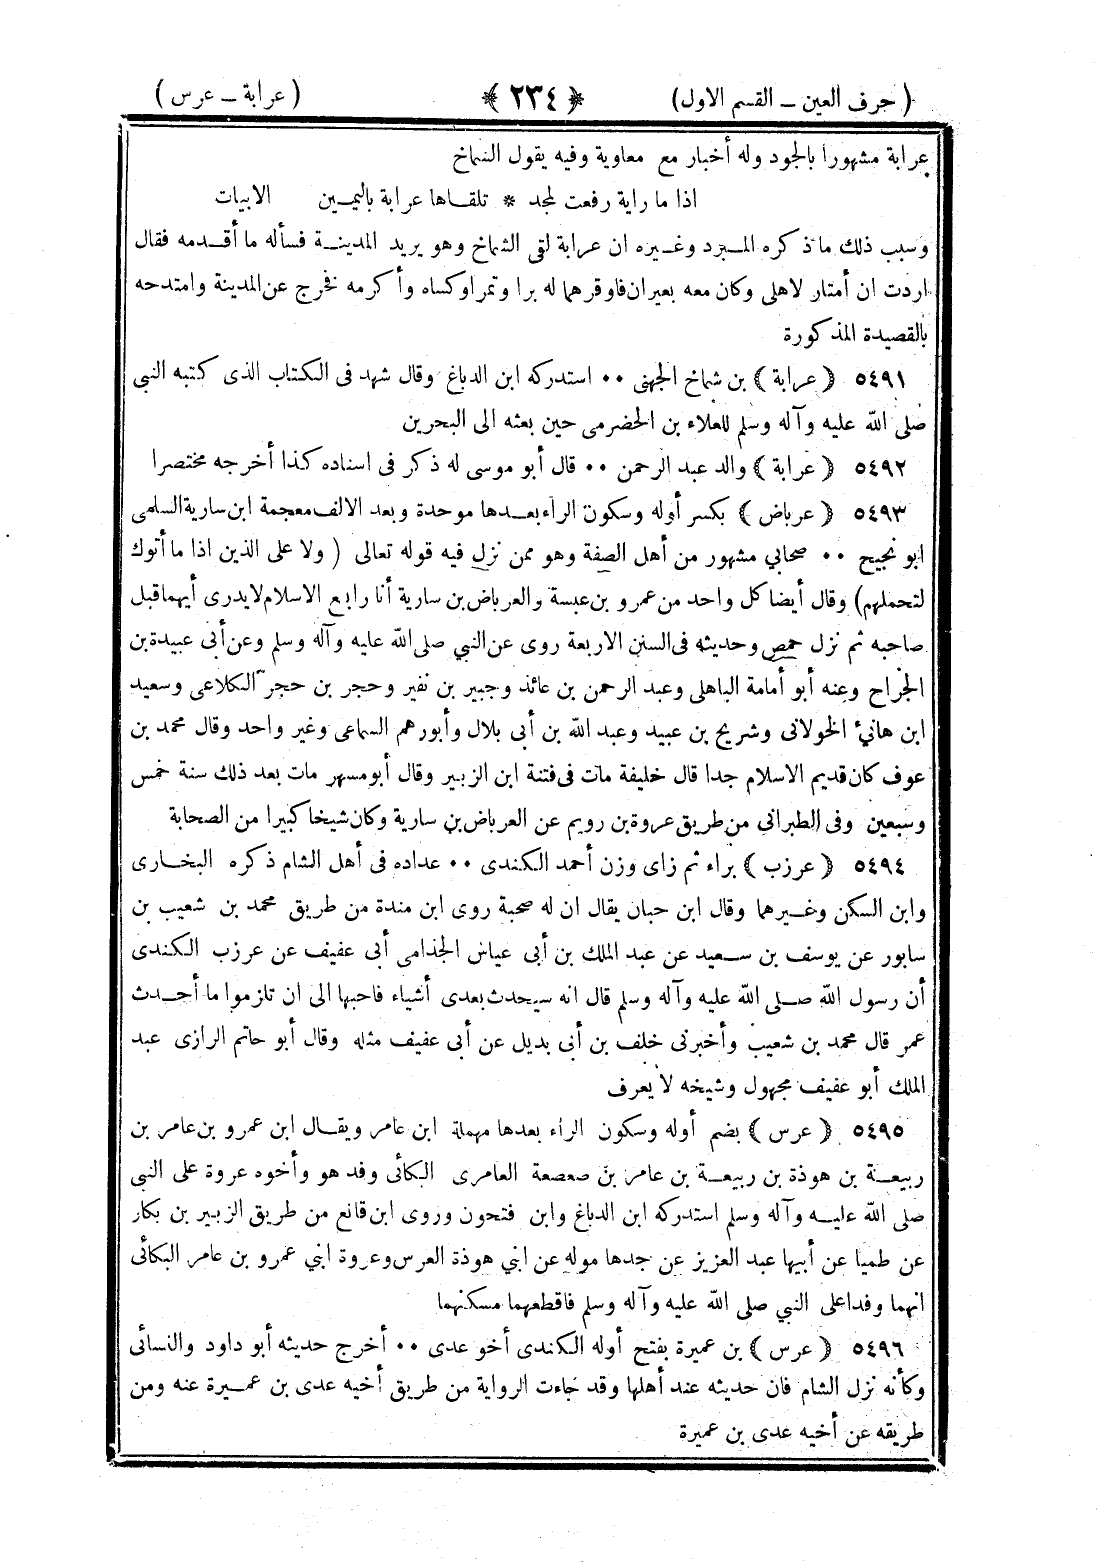 ( حرف العين ــ القسم الاول) ﴿ ٢٣٤ ﴾ ( عرابة ــ عرس )
عرابة مشهورا بالجود وله أخبار مع معاوية وفيه يقول الشماخ
اذا ما راية رفعت لمجد * تلقاها عرابة باليمين الابيات
وسبب ذلك ماذكره المبرد وغيره ان عرابة لقى الشماخ وهو يريد المدينة فسأله ما أقدمه فقال
اردت ان أمتار لاهلى وكان معه بعيران فاوقرهما له برا وتمرا وكساه وأكرمه فخرج عن المدينة وامتدحه
بالقصيدة المذكورة
٥٤٩١ ﴿ عرابة ﴾ بن شماخ الجهنى ٠٠ استدركه ابن الدباغ وقال شهد فى الكتاب الذى كتبه النبى
صلى الله عليه وآله وسلم للعلاء بن الحضرمى حين بعثه الى البحرين
٥٤٩٢ ﴿ عرابة ﴾ والد عبد الرحمن ٠٠ قال أبو موسى له ذكر فى اسناده كذا أخرجه مختصرا
٥٤٩٣ ﴿ عرباض ﴾ بكسر أوله وسكون الراء بعدها موحدة وبعد الالف معجمة ابن سارية السلمى
ابو نجيح ٠٠ صحابي مشهور من أهل الصفة وهو ممن نزل فيه قوله تعالى ( ولا على الذين اذا ما أتوك
لتحملهم) وقال أيضا كل واحد من عمرو بن عبسة والعرباض بن سارية أنا رابع الاسلام لايدرى أيهما قبل
صاحبه ثم نزل حمص وحديثه فى السنن الاربعة روى عن النبي صلى الله عليه وآله وسلم وعن أبى عبيدة بن
الجراح وعنه أبو أمامة الباهلى وعبد الرحمن بن عائذ وجبير بن نفير وحجر بن حجر الكلاعى وسعيد
ابن هانىء الخولانى وشريح بن عبيد وعبد الله بن أبى بلال وأبورهم السماعى وغير واحد وقال محمد بن
عوف كان قديم الاسلام جدا قال خليفة مات فى فتنة ابن الزبير وقال أبو مسهر مات بعد ذلك سنة خمس
وسبعين وفى الطبرانى من طريق عروة بن رويم عن العرباض بن سارية وكان شيخا كبيرا من الصحابة
٥٤٩٤ ﴿ عرزب ﴾ براء ثم زاى وزن أحمد الكندى ٠٠ عداده فى أهل الشام ذكره البخارى
وابن السكن وغيرهما وقال ابن حبان يقال ان له صحبة روى ابن مندة من طريق محمد بن شعيب بن
سابور عن يوسف بن سعيد عن عبد الملك بن أبى عياش الجذامى أبى عفيف عن عرزب الكندى
أن رسول الله صلى الله عليه وآله وسلم قال انه سيحدث بعدى أشياء فاحبها الى ان تلزموا ما أحدث
عمر قال محمد بن شعيب وأخبرنى خلف بن أبى بديل عن أبى عفيف مثله وقال أبو حاتم الرازى عبد
الملك أبو عفيف مجهول وشيخه لا يعرف
٥٤٩٥ ﴿ عرس ﴾ بضم أوله وسكون الراء بعدها مهملة ابن عامر ويقال ابن عمرو بن عامر بن
ربيعة بن هوذة بن ربيعة بن عامر بن صعصعة العامرى البكائى وفد هو وأخوه عروة على النبي
صلى الله عليه وآله وسلم استدركه ابن الدباغ وابن فتحون وروى ابن قانع من طريق الزبير بن بكار
عن طميا عن أبيها عبد العزيز عن جدها موله عن ابني هوذة العرس وعروة ابني عمرو بن عامر البكائى
انهما وفدا على النبي صلى الله عليه وآله وسلم فاقطعهما مسكنهما
٥٤٩٦ ﴿ عرس ﴾ بن عميرة بفتح أوله الكندى أخو عدى ٠٠ أخرج حديثه أبو داود والنسائى
وكأنه نزل الشام فان حديثه عند أهلها وقد جاءت الرواية من طريق أخيه عدى بن عميرة عنه ومن
طريقه عن أخيه عدى بن عميرة